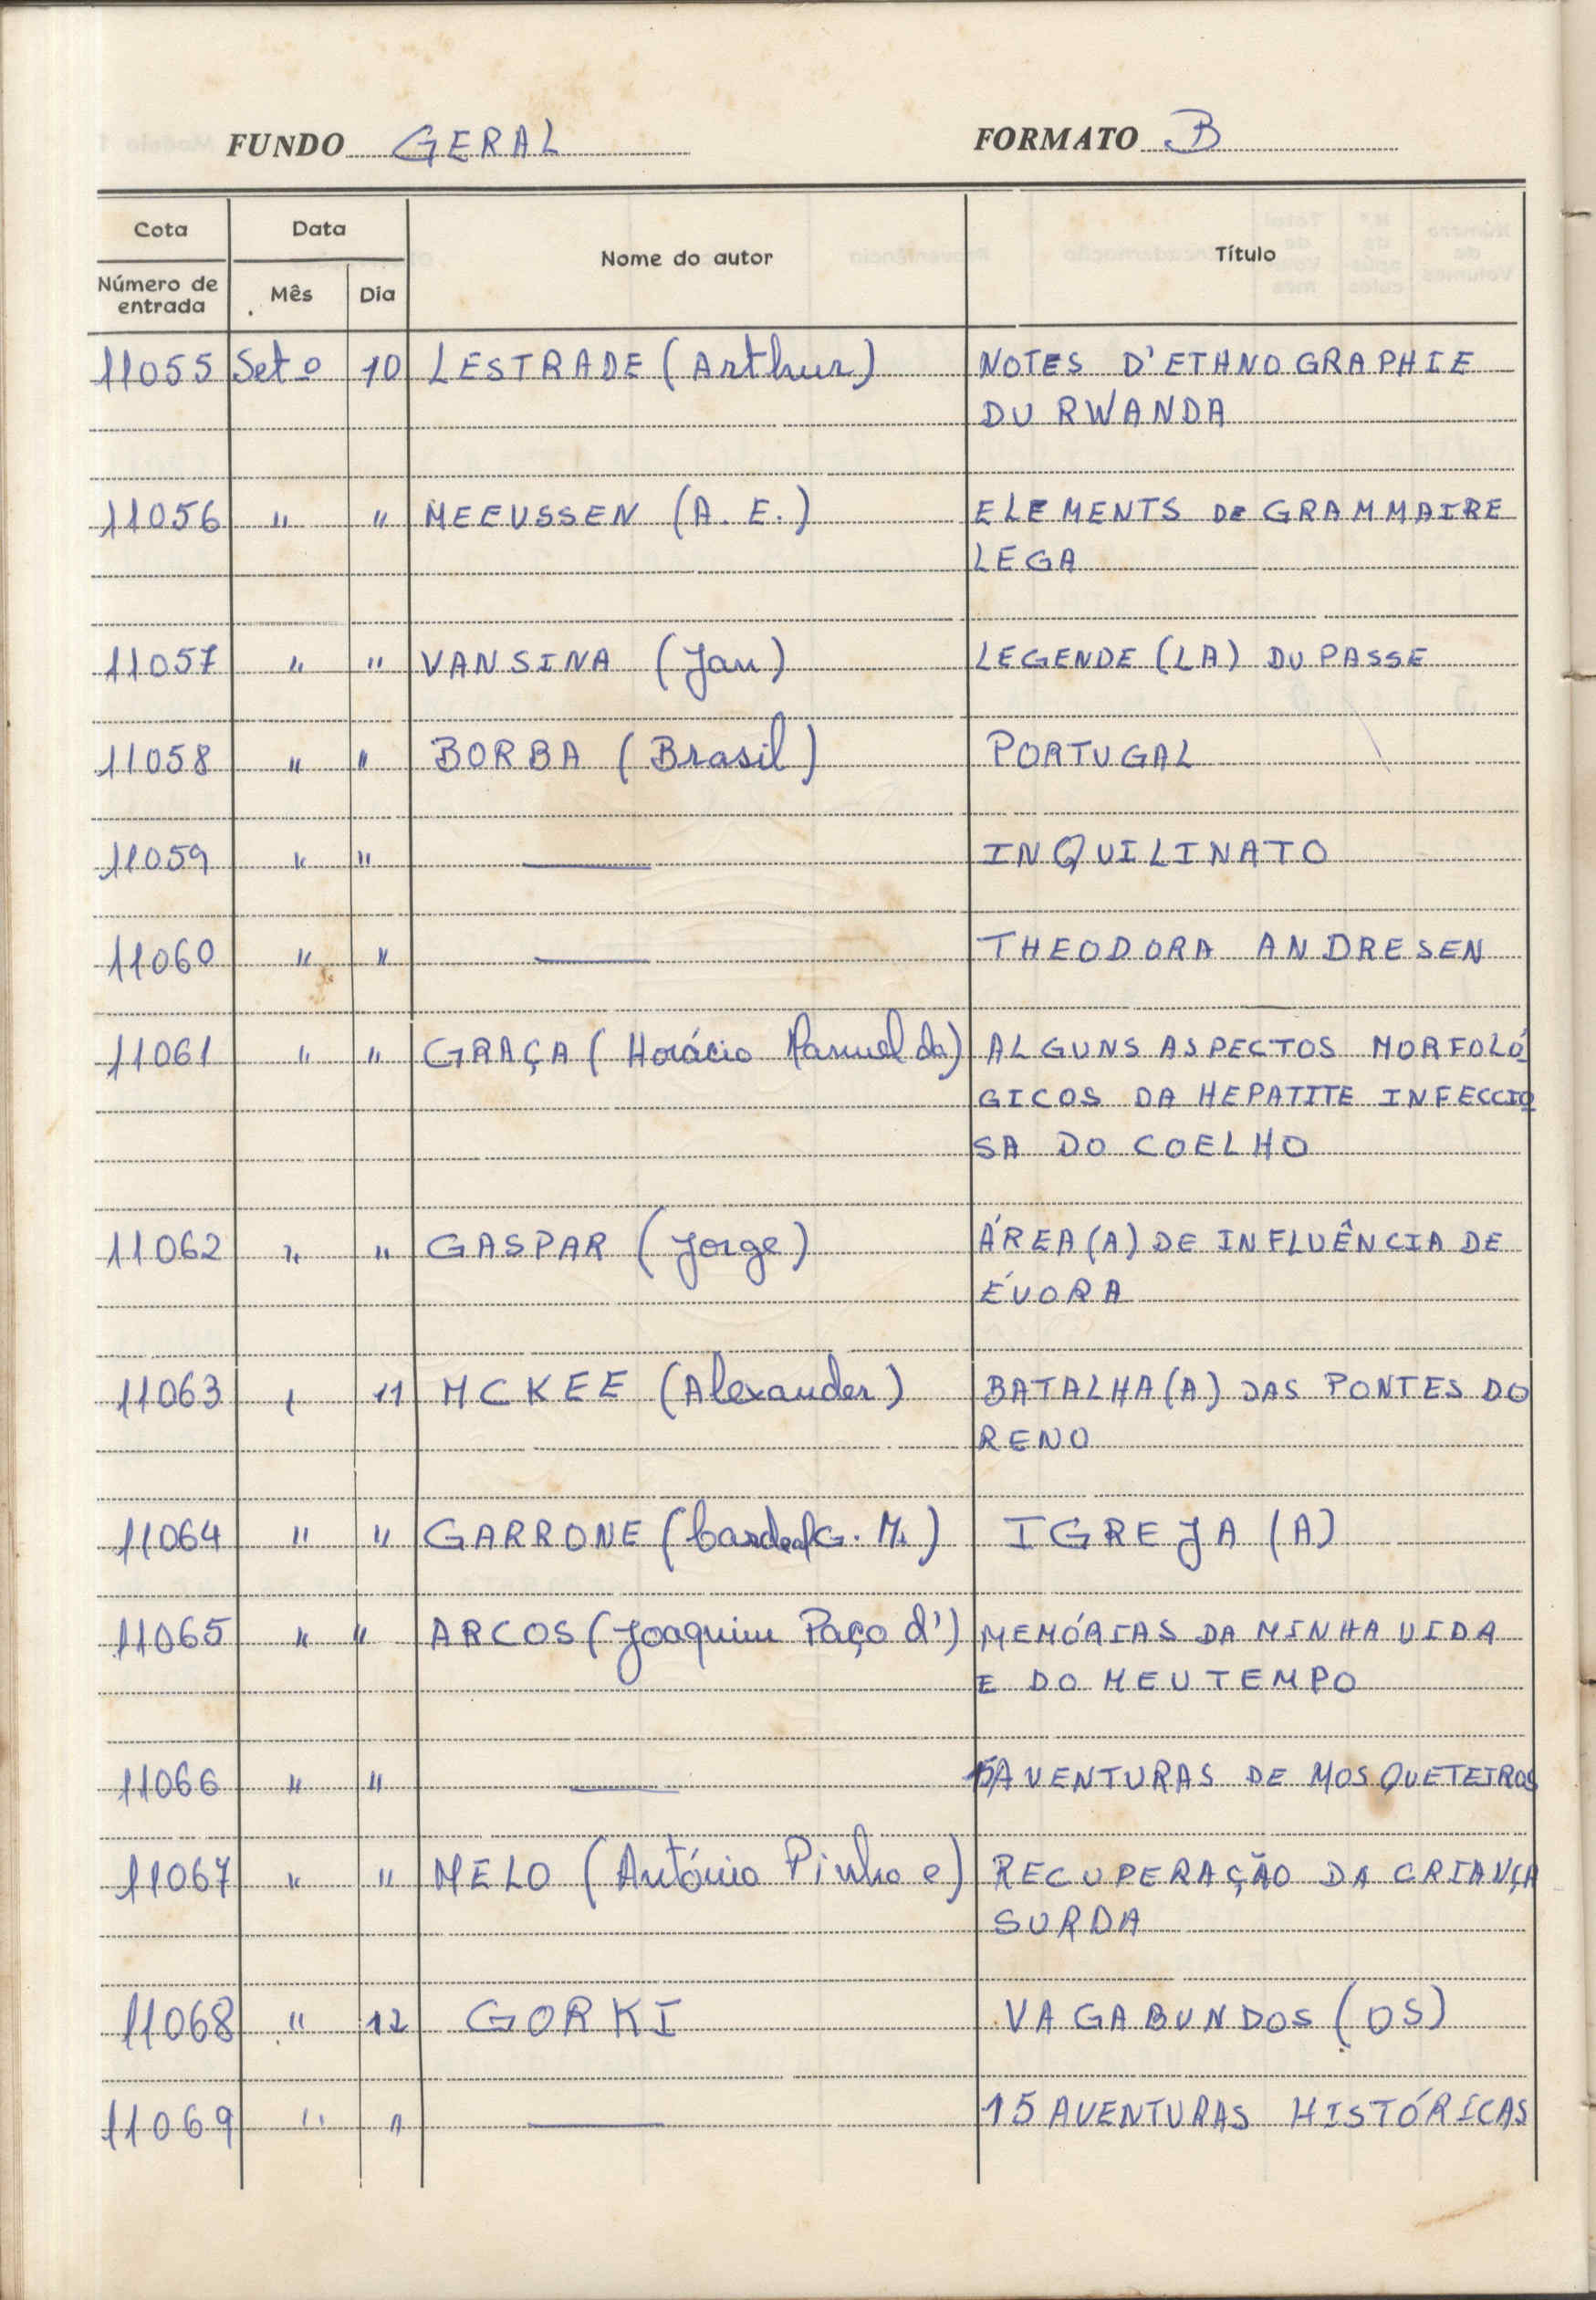 FUNDO GERAL FORMATO B
Cota Data Nome do autor Título
Número de entrada Mês Dia
11055 Setº 10 LESTRADE (Arthur) NOTES D'ETHNOGRAPHIE
DU RWANDA
11056 " " MEEUSSEN (A. E.) ELEMENTS DE GRAMMAIRE
LEGA
11057 " " VANSINA (Jan) LEGENDE (LA) DU PASSE
11058 " " BORBA (Brasil) PORTUGAL
11059 " " — INQUILINATO
11060 " " — THEODORA ANDRESEN
11061 " " GRAÇA (Horácio Manuel da) ALGUNS ASPECTOS MORFOLÓ
GICOS DA HEPATITE INFECCIO
SA DO COELHO
11062 " " GASPAR (Jorge) ÁREA (A) DE INFLUÊNCIA DE
ÉVORA
11063 " 11 MCKEE (Alexander) BATALHA (A) DAS PONTES DO
RENO
11064 " " GARRONE (Cardeal G. M.) IGREJA (A)
11065 " " ARCOS (Joaquim Paço d') MEMÓRIAS DA MINHA VIDA
E DO MEU TEMPO
11066 " " — 15 AVENTURAS DE MOSQUETEIROS
11067 " " MELO (António Pinho e) RECUPERAÇÃO DA CRIANÇA
SURDA
11068 " 12 GORKI VAGABUNDOS (OS)
11069 " " — 15 AVENTURAS HISTÓRICAS